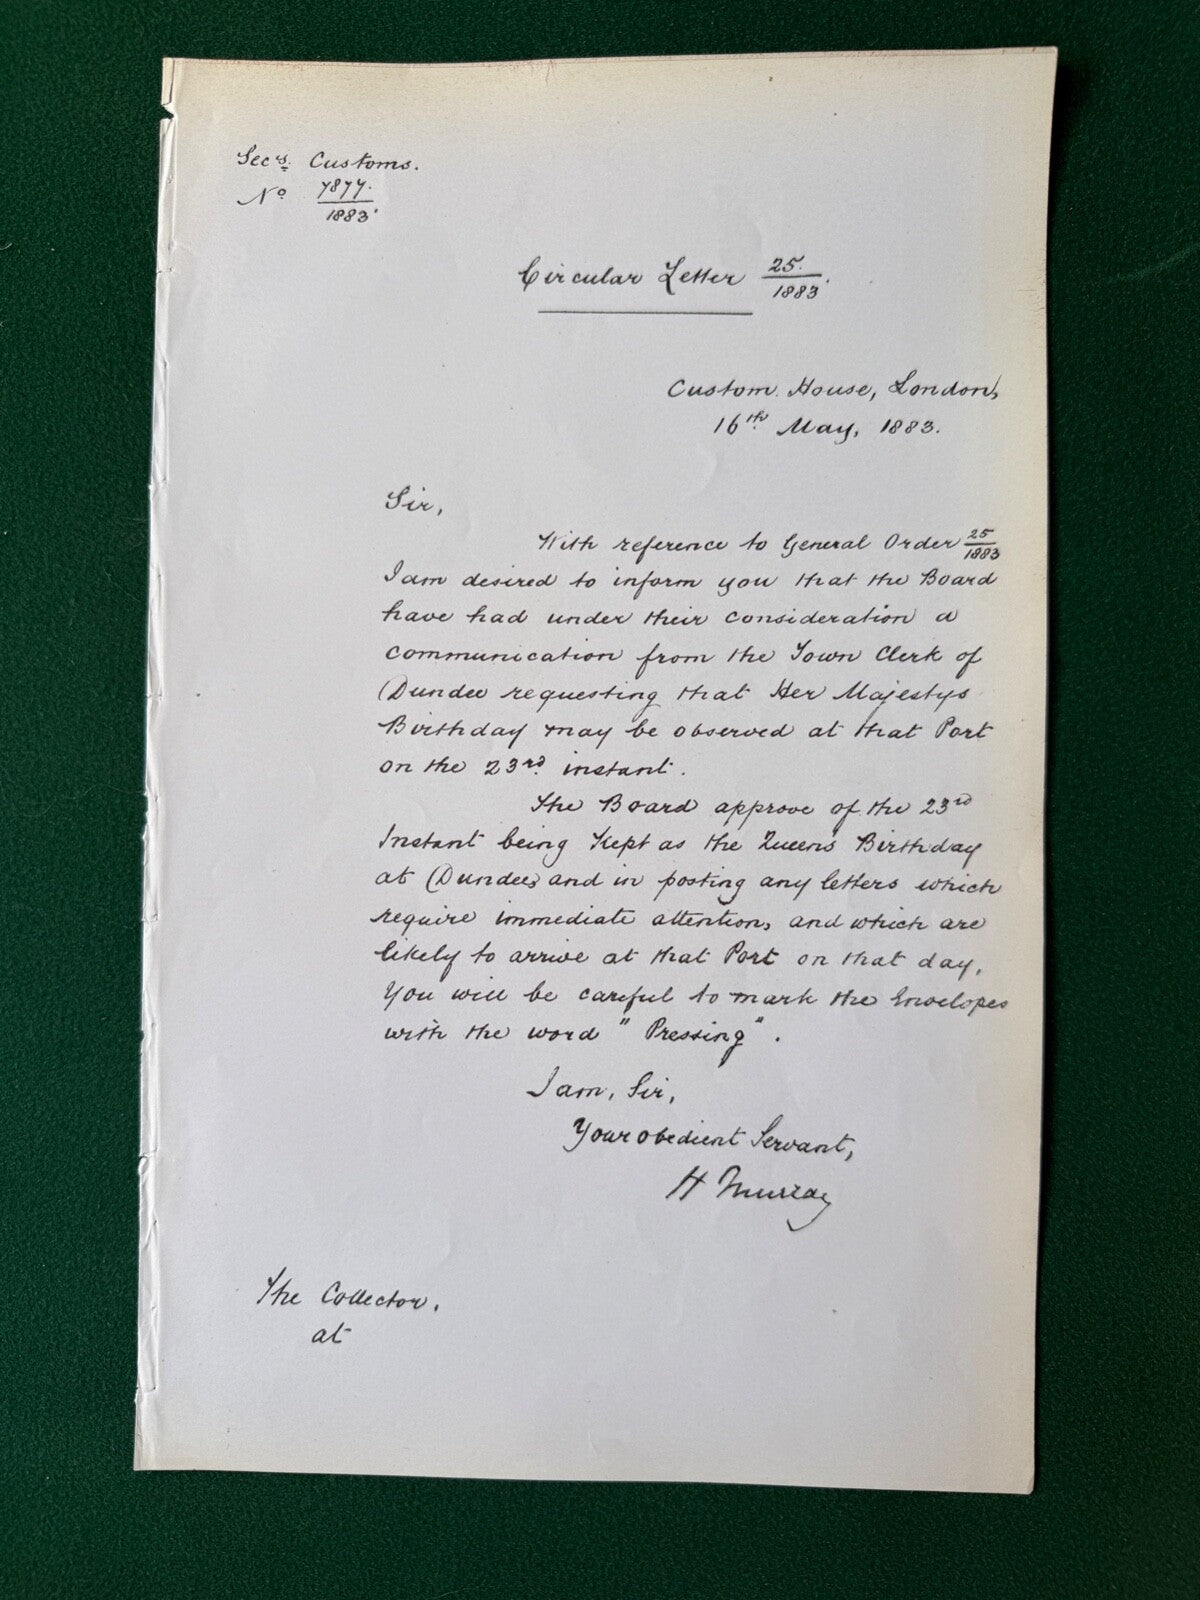 Secys. Customs.
No 7877.
1883.
Circular Letter 25.
1883.
Custom House, London,
16th May, 1883.
Sir,
With reference to General Order 25
1883
I am desired to inform you that the Board
have had under their consideration a
communication from the Town Clerk of
Dundee requesting that Her Majestys
Birthday may be observed at that Port
on the 23rd instant.
The Board approve of the 23rd
Instant being Kept as the Queens Birthday
at Dundee, and in posting any letters which
require immediate attention, and which are
likely to arrive at that Port on that day,
You will be careful to mark the Envelopes
with the word "Pressing".
I am, Sir,
Your obedient Servant,
H Murray
The Collector.
at